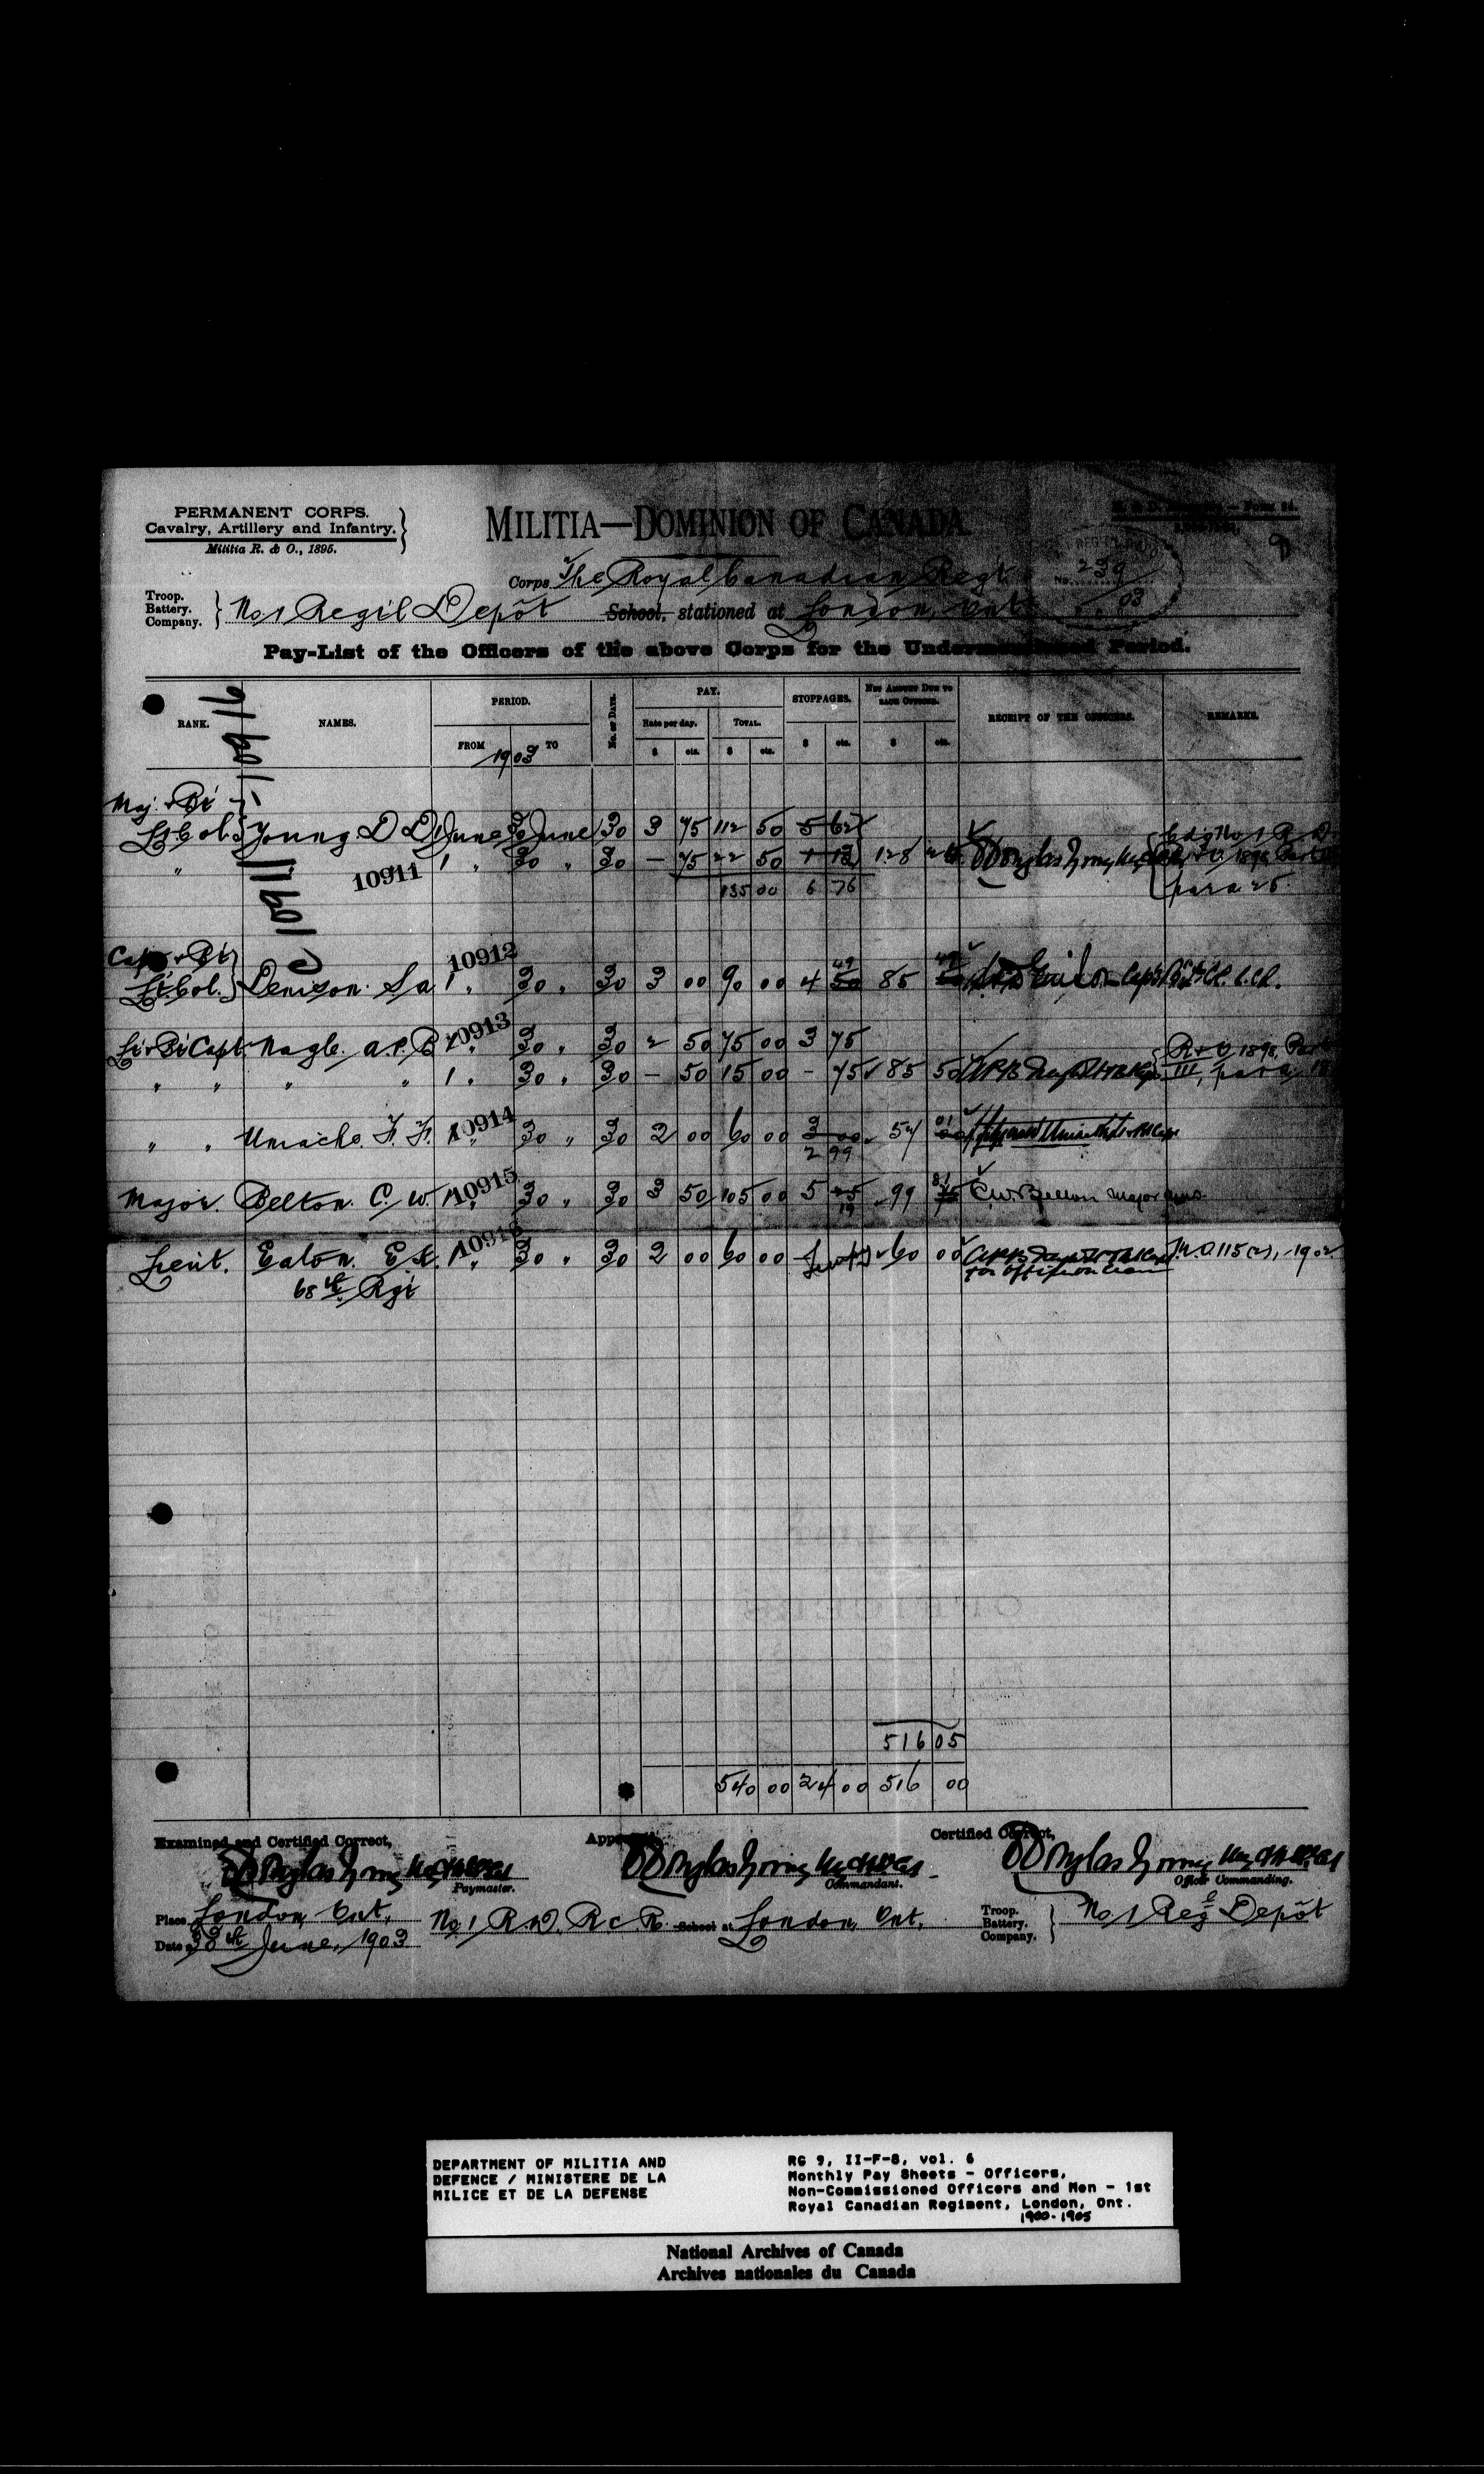 PERMANENT CORPS.
Cavalry, Artillery and Infantry.
Militia R. & O., 1895.
MILITIA—DOMINION OF CANADA
Corps The Royal Canadian Regt
No. 239
03
Troop. Battery. Company. } No 1 Reg'l Depôt School, stationed at London, Ont
Pay-List of the Officers of the above Corps for the Undermentioned Period.
RANK. NAMES. PERIOD. FROM 1903 TO No. of Days. PAY. Rate per day. $ cts. TOTAL. $ cts. STOPPAGES. $ cts. NET AMOUNT DUE TO EACH OFFICER. $ cts. RECEIPT OF THE OFFICERS. REMARKS.
C 10911-10916
Maj. + Bt
Lt. Col. } Young D D 1 June 30 June 30 3 75 112 50 5 62
" 10911 1 " 30 " 30 — 75 22 50 1 13 128 24 R + O 1898
135 00 6 76 para 25
Capt + Bt
Lt. Col. } Denison. S a 10912 1 " 30 " 30 3 00 90 00 4 50 49 85 49
Lt + Bt Capt. Nagle. A. P. B 10913 1 " 30 " 30 2 50 75 00 3 75 R + O 1898, Part
" " " " 1 " 30 " 30 — 50 15 00 - 75 85 50 III, para
" " Uniacke. F. F. 10914 1 " 30 " 30 2 00 60 00 3 00 57 01
2 99
Major. Belton. C. W. 10915 1 " 30 " 30 3 50 105 00 5 25 99 81 C.W. Belton Major
19
Lieut. Eaton. E. K. 10916 1 " 30 " 30 2 00 60 00 60 00 115 (2), -1902
68th Rgt
516 05
540 00 24 00 516 00
Examined and Certified Correct, Approved, Certified Correct,
Paymaster. Commandant. Officer Commanding.
Place London, Ont. No 1 R. D. R C R. School at London, Ont. Troop. Battery. Company. } No 1 Reg'l Depôt
Date 30th June, 1903
DEPARTMENT OF MILITIA AND
DEFENCE / MINISTERE DE LA
MILICE ET DE LA DEFENSE
RG 9, II-F-8, vol. 6
Monthly Pay Sheets - Officers,
Non-Commissioned Officers and Men - 1st
Royal Canadian Regiment, London, Ont.
1900-1905
National Archives of Canada
Archives nationales du Canada